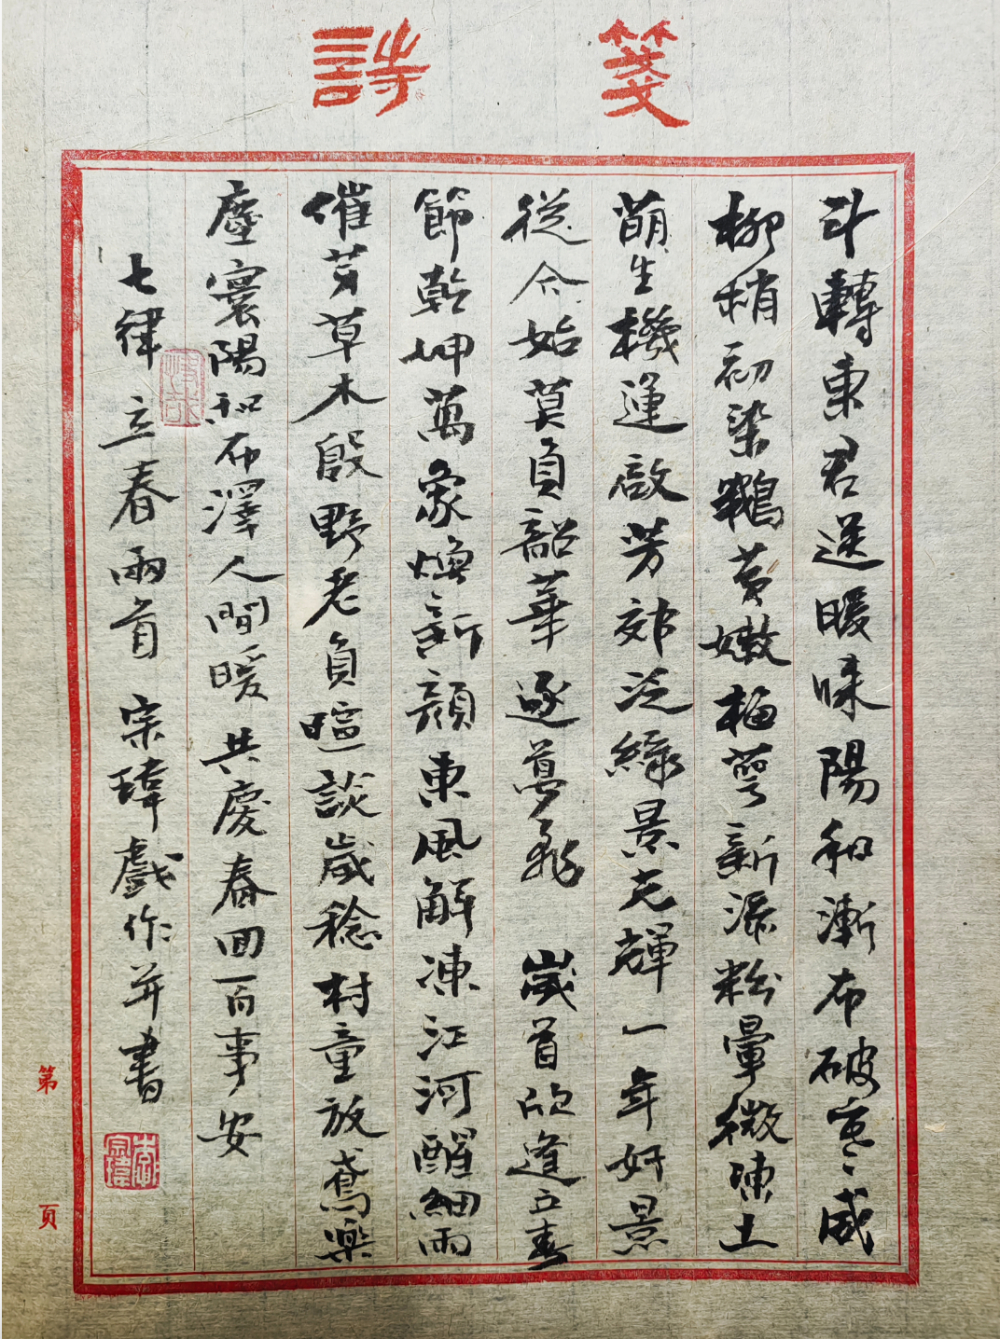 詩箋
斗轉東君送暖陽和漸布破寒威
柳梢初染鵝黃嫩梅萼新添粉暈微凍土
萌生機運啟芳郊泛綠景光輝一年好景
從今始莫負韶華逐夢飛 歲首欣逢立春
節乾坤萬象煥新顏東風解凍江河醒細雨
催芽草木殷野老負暄談歲稔村童放鳶樂
塵寰陽和布澤人間暖共慶春回百事安
七律 立春兩首 宗瑋戲作并書
李宗瑋
第 頁